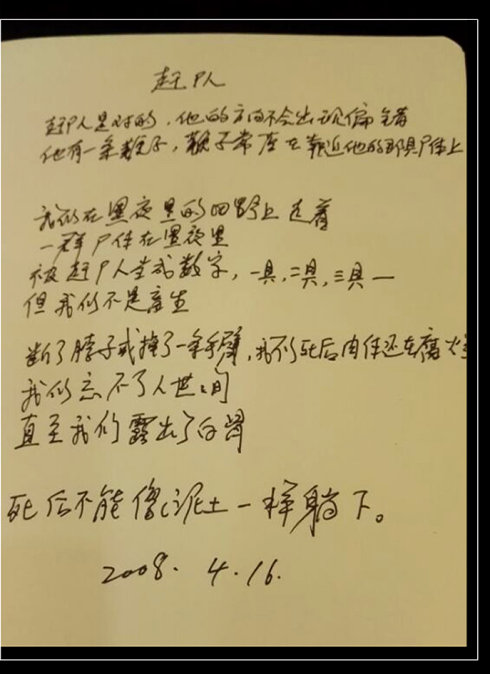 赶尸人
赶尸人是对的，他的方向不会出现偏错
他有一条鞭子，鞭子常落在靠近他的那具尸体上
我们在黑夜里的四野上走着
一群尸体在黑夜里
被赶尸人当成数字，一具，二具，三具一
但我们不是畜生
断了脖子或掉了一条手臂，我们死后肉体还在腐烂
我们忘不了人世间
直至我们露出了白骨
死后不能像泥土一样躺下。
2008. 4. 16.